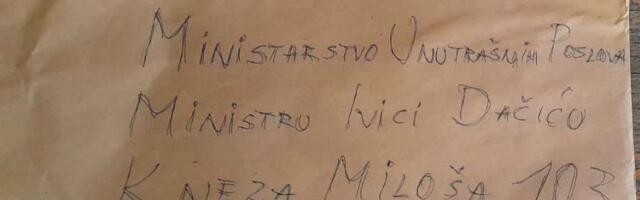 MINISTARSTVO UNUTRAŠNJIH POSLOVA
MINISTRU IVICI DAČIĆU
KNEZA MILOŠA 103